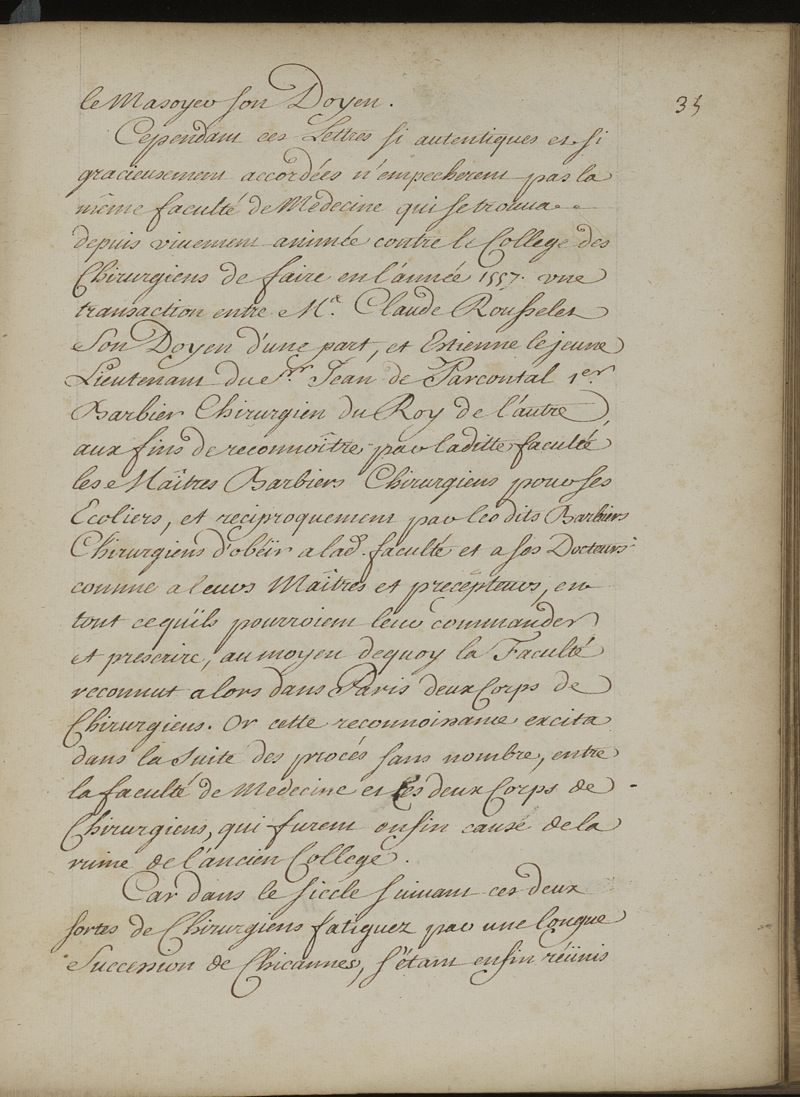 le Masoyer son Doyen.
35
Cependant ces Lettres si autentiques et si
gracieusement accordées n'empecherent pas la
même faculté de Médecine qui se trouva
depuis vivement animée contre le College des
Chirurgiens de faire en l'année 1557. vne
transaction entre Me. Claude Rousselet
Son Doyen d'une part, et Estienne le jeune
Lieutenant du Sr. Jean de Parcontal 1er.
Barbier Chirurgien du Roy de l'autre,
aux fins de reconnoître par laditte faculté
les Maîtres Barbiers Chirurgiens pour ses
Ecoliers, et reciproquement par les dits Barbiers
Chirurgiens d'obéir a lad. faculté et a ses Docteurs
comme a leurs Maîtres et precepteurs, en
tout ce qu'ils pourroient leur commander
et prescrire, au moyen dequoy la Faculté
reconnut alors dans Paris deux Corps de
Chirurgiens. Or cette reconnoissance excita
dans la Suite des procés sans nombre, entre
la faculté de Medecine et les deux Corps de
Chirurgiens, qui furent enfin cause de la
ruine de l'ancien College.
Car dans le siecle suivant ces deux
sortes de Chirurgiens fatiguez par une longue
Succession de Chicannes, s'étant enfin réünis